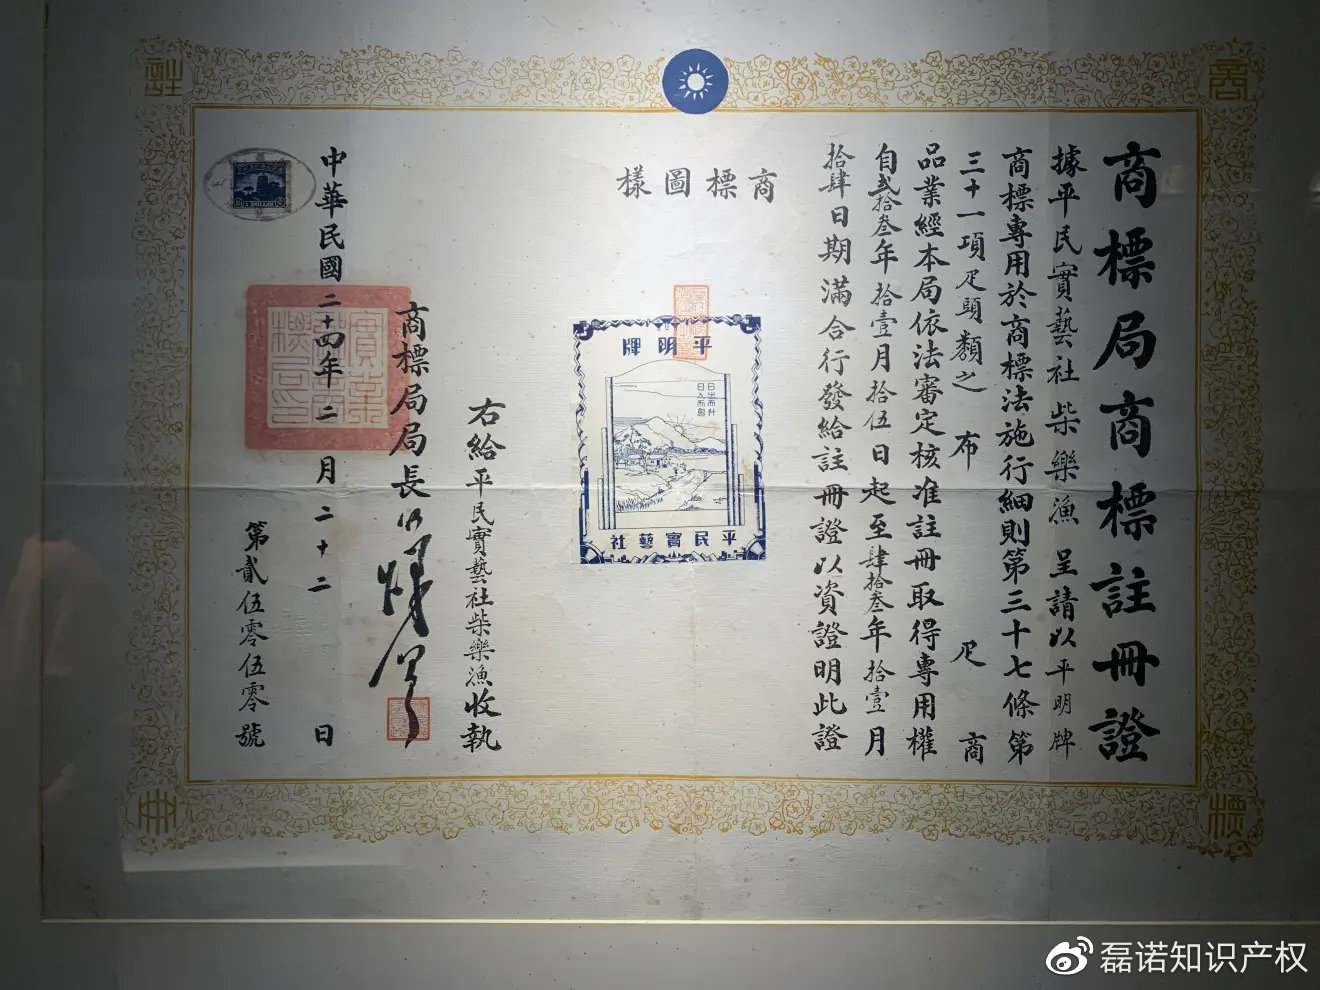 商標局商標註冊證
據平民實藝社柴樂漁呈請以平明牌
商標專用於商標法施行細則第三十七條第
三十一項疋頭類之布疋商
品業經本局依法審定核准註冊取得專用權
自貳拾叁年拾壹月拾伍日起至肆拾叁年拾壹月
拾肆日期滿合行發給註冊證以資證明此證
商標圖樣
平明牌
日出而作
日入而息
平民實藝社
右給平民實藝社柴樂漁收執
商標局局長
中華民國二十四年二月二十二日
第貳伍零伍零號
商
標
註
冊
磊诺知识产权